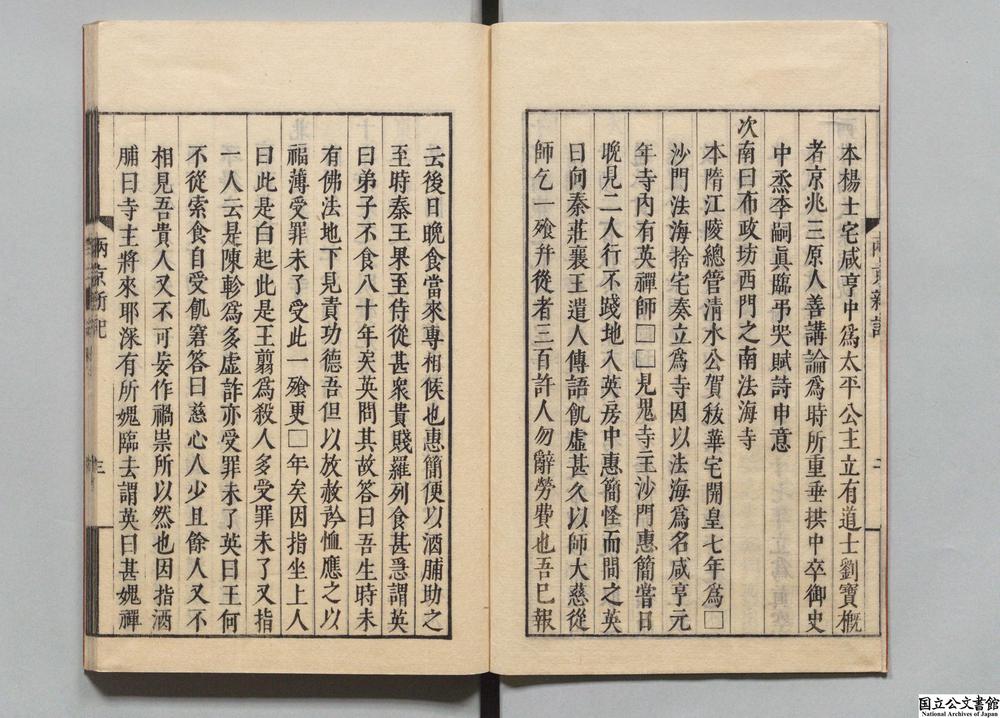 本楊士宅咸亨中爲太平公主立有道士劉寶概
者京兆三原人善講論爲時所重垂拱中卒御史
中烝李嗣眞臨弔哭賦詩申意
次南曰布政坊西門之南法海寺
本隋江陵總管清水公賀䟦華宅開皇七年爲□
沙門法海捨宅奏立爲寺因以法海爲名咸亨元
年寺内有英禪師□□見鬼寺主沙門惠簡嘗日
晚見二人行不踐地入英房中惠簡怪而問之英
曰向秦莊襄王遣人傳語飢虛甚久以師大慈從
師乞一飱并從者三百許人勿辭勞費也吾已報
云後日晚食當來專相候也惠簡便以酒脯助之
至時秦王果至侍從甚衆貴賤羅列食甚急謂英
曰弟子不食八十年矣英問其故答曰吾生時未
有佛法地下見責功德吾但以放赦矜恤應之以
福薄受罪未了受此一飱更□年矣因指坐上人
曰此是白起此是王翦爲殺人多受罪未了又指
一人云是陳軫爲多虛詐亦受罪未了英曰王何
不從索食自受飢窘答曰慈心人少且餘人又不
相見吾貴人又不可妄作禍祟所以然也因指酒
脯曰寺主將來耶深有所媿臨去謂英曰甚媿禪
兩京新記
三